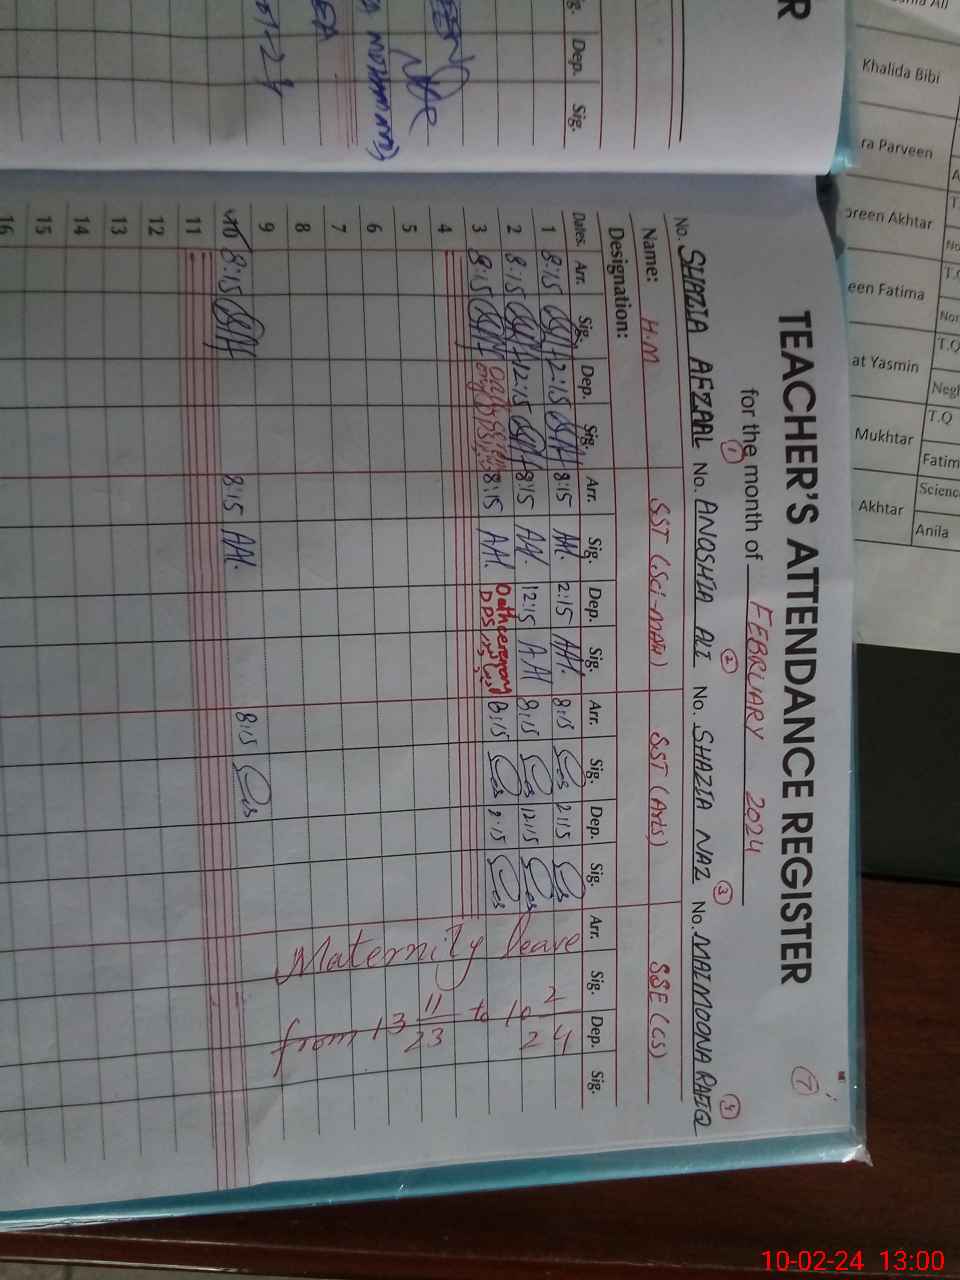 TEACHER'S ATTENDANCE REGISTER
for the month of FEBRUARY 2024
7
No. SHAZIA AFZAAL 1 No. ANOSHIA ALI 2 No. SHAZIA NAZ 3 No. MAIMOONA RAFIQ 4
Name: H.M SST (Sci-Math) SST (Arts) SSE (CS)
Designation:
Dates. Arr. Sig. Dep. Sig. Arr. Sig. Dep. Sig. Arr. Sig. Dep. Sig. Arr. Sig. Dep. Sig.
1 8:15 2:15 8:15 AAl. 2:15 AAl. 8:15 2:15
2 8:15 12:15 8:15 AAl. 12:15 AAl 8:15 12:15
3 8:15 8:15 AAl. Oath ceremony DPS 8:15
4
5
6
7
8
9
10 8:15 8:15 AAl. 8:15
11
12
13
14
15
16
Maternity leave
from 13 11 23 to 10 2 24
R
g. Dep. Sig.
Khalida Bibi
ra Parveen
oreen Akhtar
een Fatima
at Yasmin
Mukhtar
Akhtar
T.Q
Negl
T.Q
Fatim
Science
Anila
10-02-24 13:00